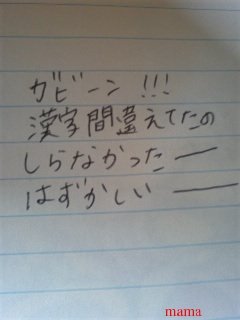 ガビーン!!!
漢字間違えてたの
しらなかったー
はずかしいー
mama